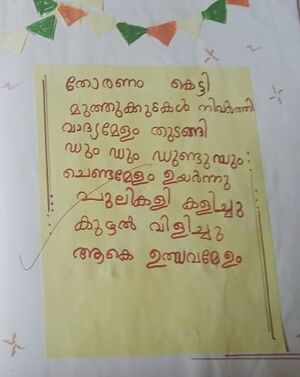 തോരണം കെട്ടി
മുത്തുക്കുടകൾ നിവർത്തി
വാദ്യമേളം തുടങ്ങി
ഡും ഡും ഡുണ്ടുമ്പും
ചെണ്ടമേളം ഉയർന്നു
പുലികളി കളിച്ചു
കുഴൽ വിളിച്ചു
ആകെ ഉത്സവമേളം